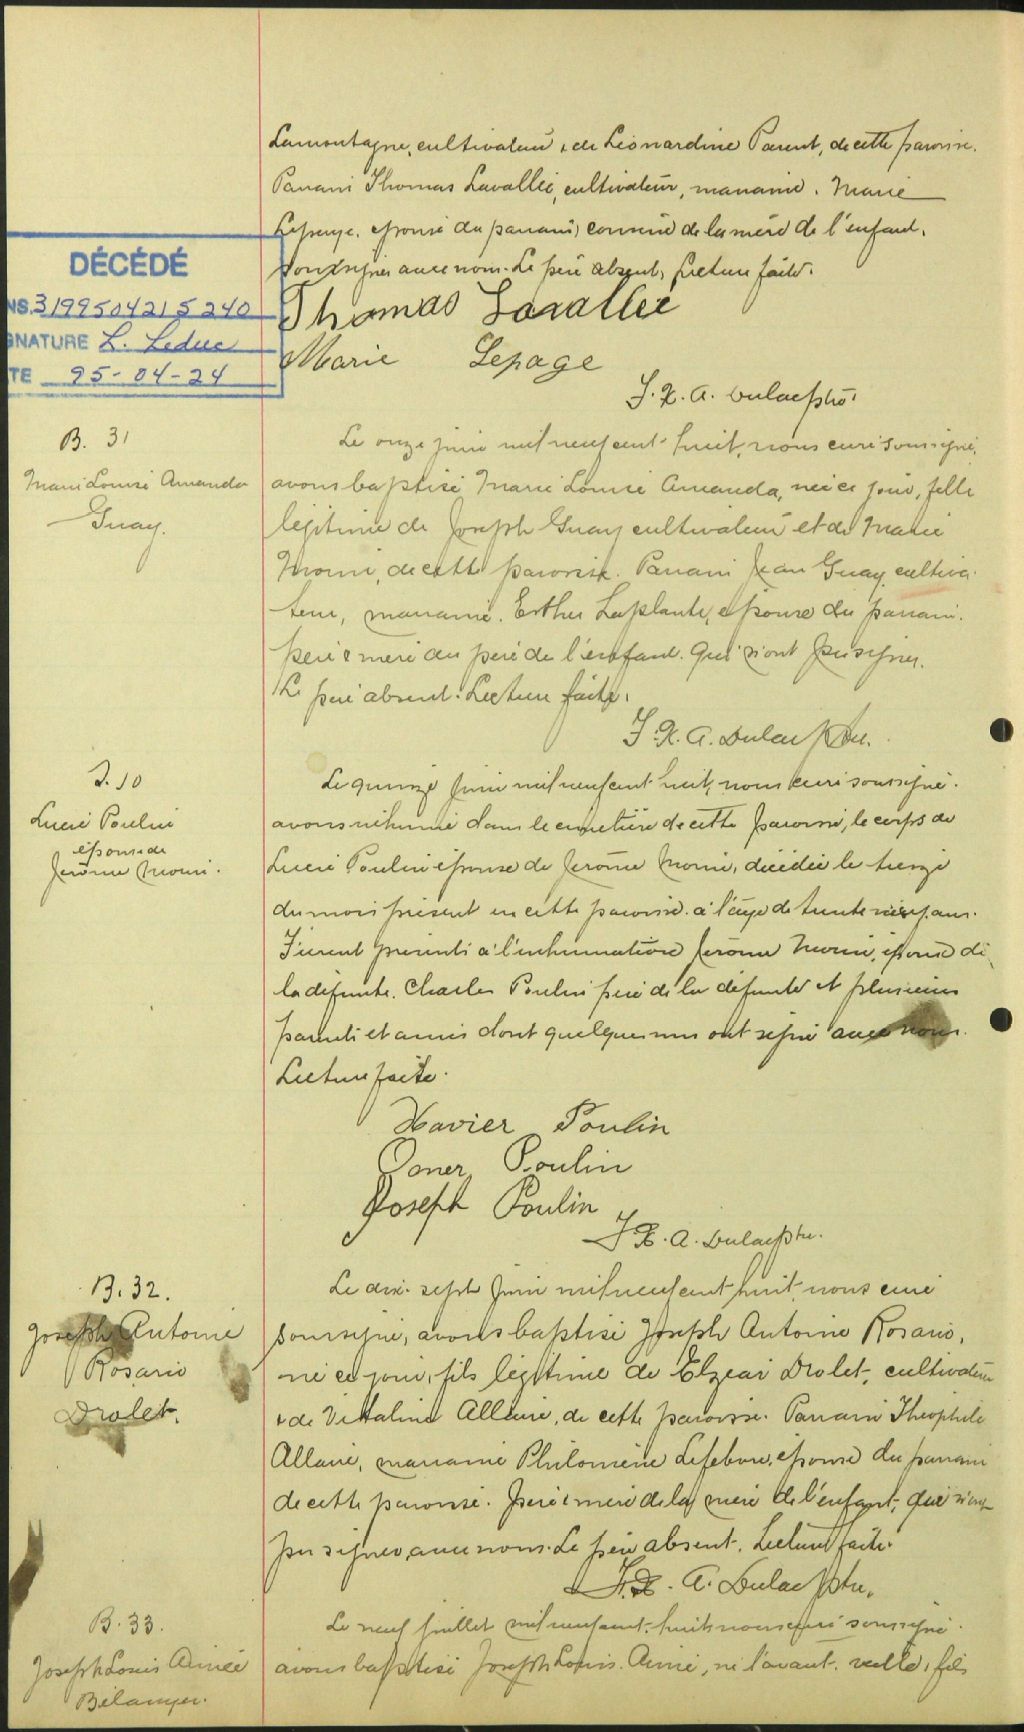 Lamontagne, cultivateur & de Léonardine Parent, de cette paroisse.
Parrain Thomas Lavallée, cultivateur, marraine. Marie
Lepage. épouse du parrain, cousine de la mère de l'enfant.
soussignés avec nous. Le père absent, Lecture faite.
DÉCÉDÉ
NS. 3199504215240
GNATURE L. Leduc
TE 95-04-24
Thomas Lavallée
Marie Lepage
F. X. A. Dulac Ptre.
B. 31
Marie Louise Amanda
Guay.
Le onze juin mil neuf cent huit, nous curé soussigné,
avons baptisé Marie Louise Amanda, née ce jour, fille
légitime de Joseph Guay cultivateur et de Marie
Morin, de cette paroisse. Parrain Jean Guay, cultiva-
teur, marraine. Esther Laplante, épouse du parrain.
père & mère du père de l'enfant. Qui n'ont pu signer.
Le père absent. Lecture faite.
F. X. A. Dulac Ptre.
S. 10
Lucie Poulin
épouse de
Jérôme Morin.
Le quinze juin mil neuf cent huit, nous curé soussigné.
avons inhumé dans le cimetière de cette paroisse, le corps de
Lucie Poulin épouse de Jérôme Morin, décédée le treize
du mois présent en cette paroisse. à l'âge de trente ans.
Furent présents à l'inhumation Jérôme Morin, époux de
la défunte. Charles Poulin père de la défunte et plusieurs
parents et amis dont quelques uns ont signé avec nous.
Lecture faite.
Xavier Poulin
Omer Poulin
Joseph Poulin
F. X. A. Dulac Ptre.
B. 32.
Joseph Antoine
Rosario
Drolet.
Le dix-sept juin mil neuf cent huit, nous curé
soussigné, avons baptisé Joseph Antoine Rosario,
né ce jour, fils légitime de Elzéar Drolet, cultivateur
& de Vitaline Allaire, de cette paroisse. Parrain Théophile
Allaire, marraine Philomène Lefebvre, épouse du parrain
de cette paroisse. père & mère de la mère de l'enfant, qui n'ont
pu signer avec nous. Le père absent. Lecture faite.
F. X. A. Dulac Ptre.
B. 33.
Joseph Louis Aimée
Bélanger.
Le neuf juillet mil neuf cent huit nous curé soussigné.
avons baptisé Joseph Louis Aimé, né l'avant-veille, fils